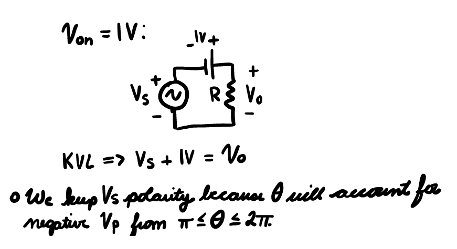 Von = 1V:
- 1V +
+ +
Vs R Vo
- -
KVL => Vs + 1V = Vo
o We keep Vs polarity because θ will account for
negative Vp from π ≤ θ ≤ 2π.